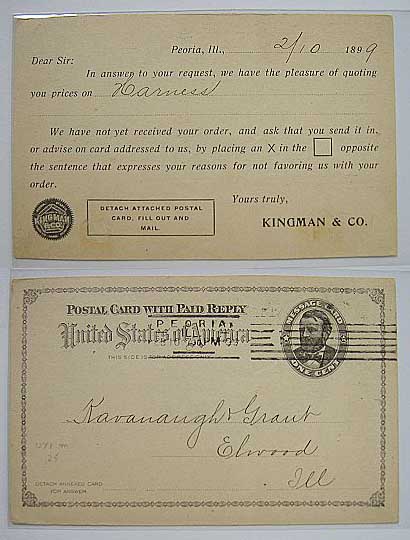 Peoria, Ill., 2/10 1899
Dear Sir:
In answer to your request, we have the pleasure of quoting
you prices on Harness
We have not yet received your order, and ask that you send it in,
or advise on card addressed to us, by placing an X in the opposite
the sentence that expresses your reasons for not favoring us with your
order.
Yours truly,
KINGMAN & CO.
KINGMAN
& CO.
DETACH ATTACHED POSTAL
CARD, FILL OUT AND
MAIL.
POSTAL CARD WITH PAID REPLY
United States of America
THIS SIDE IS FOR ADDRESS ONLY
PEORIA,
ILL.
MESSAGE CARD
ONE CENT
Kavanaugh & Grant
Elwood
Ill
DETACH ANNEXED CARD
FOR ANSWER